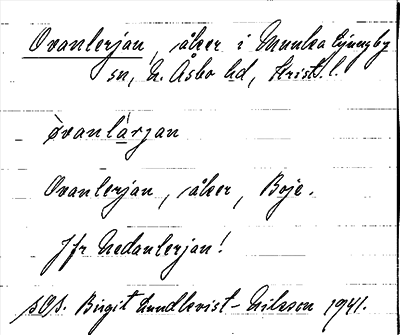 Ovanlerjan, åker i Munka Ljungby
sn, N. Åsbo hd, Krist. l.
òvanlàrjan
Ovanlerjan, åker, Boje.
Jfr Nedanlerjan!
Birgit Lundkvist-Nilsson 1941.